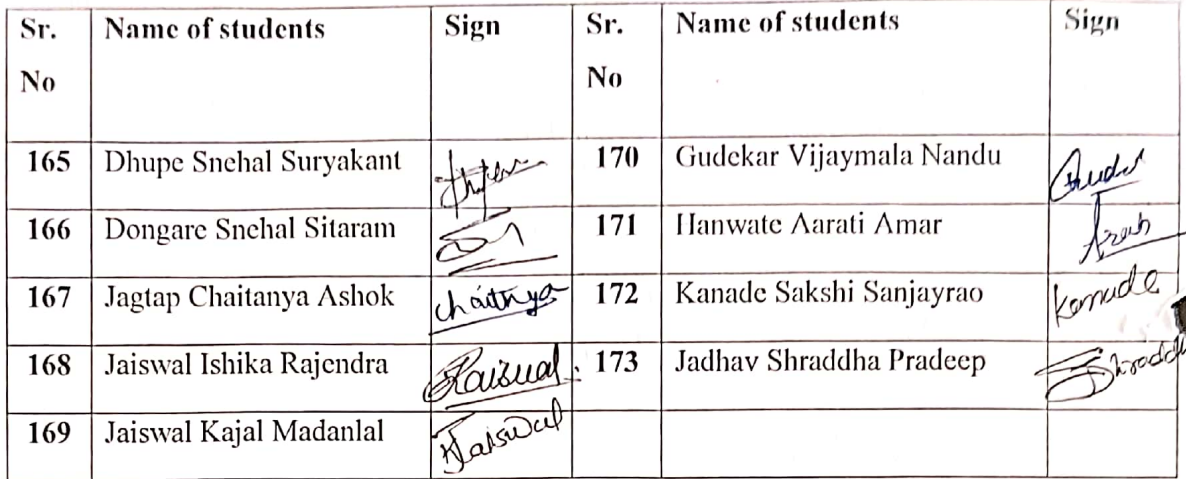 Sr. No Name of students Sign Sr. No Name of students Sign
165 Dhupe Snehal Suryakant 170 Gudekar Vijaymala Nandu
166 Dongare Snehal Sitaram 171 Hanwate Aarati Amar
167 Jagtap Chaitanya Ashok chaitnya 172 Kanade Sakshi Sanjayrao Kanade
168 Jaiswal Ishika Rajendra 173 Jadhav Shraddha Pradeep
169 Jaiswal Kajal Madanlal KJaiswal